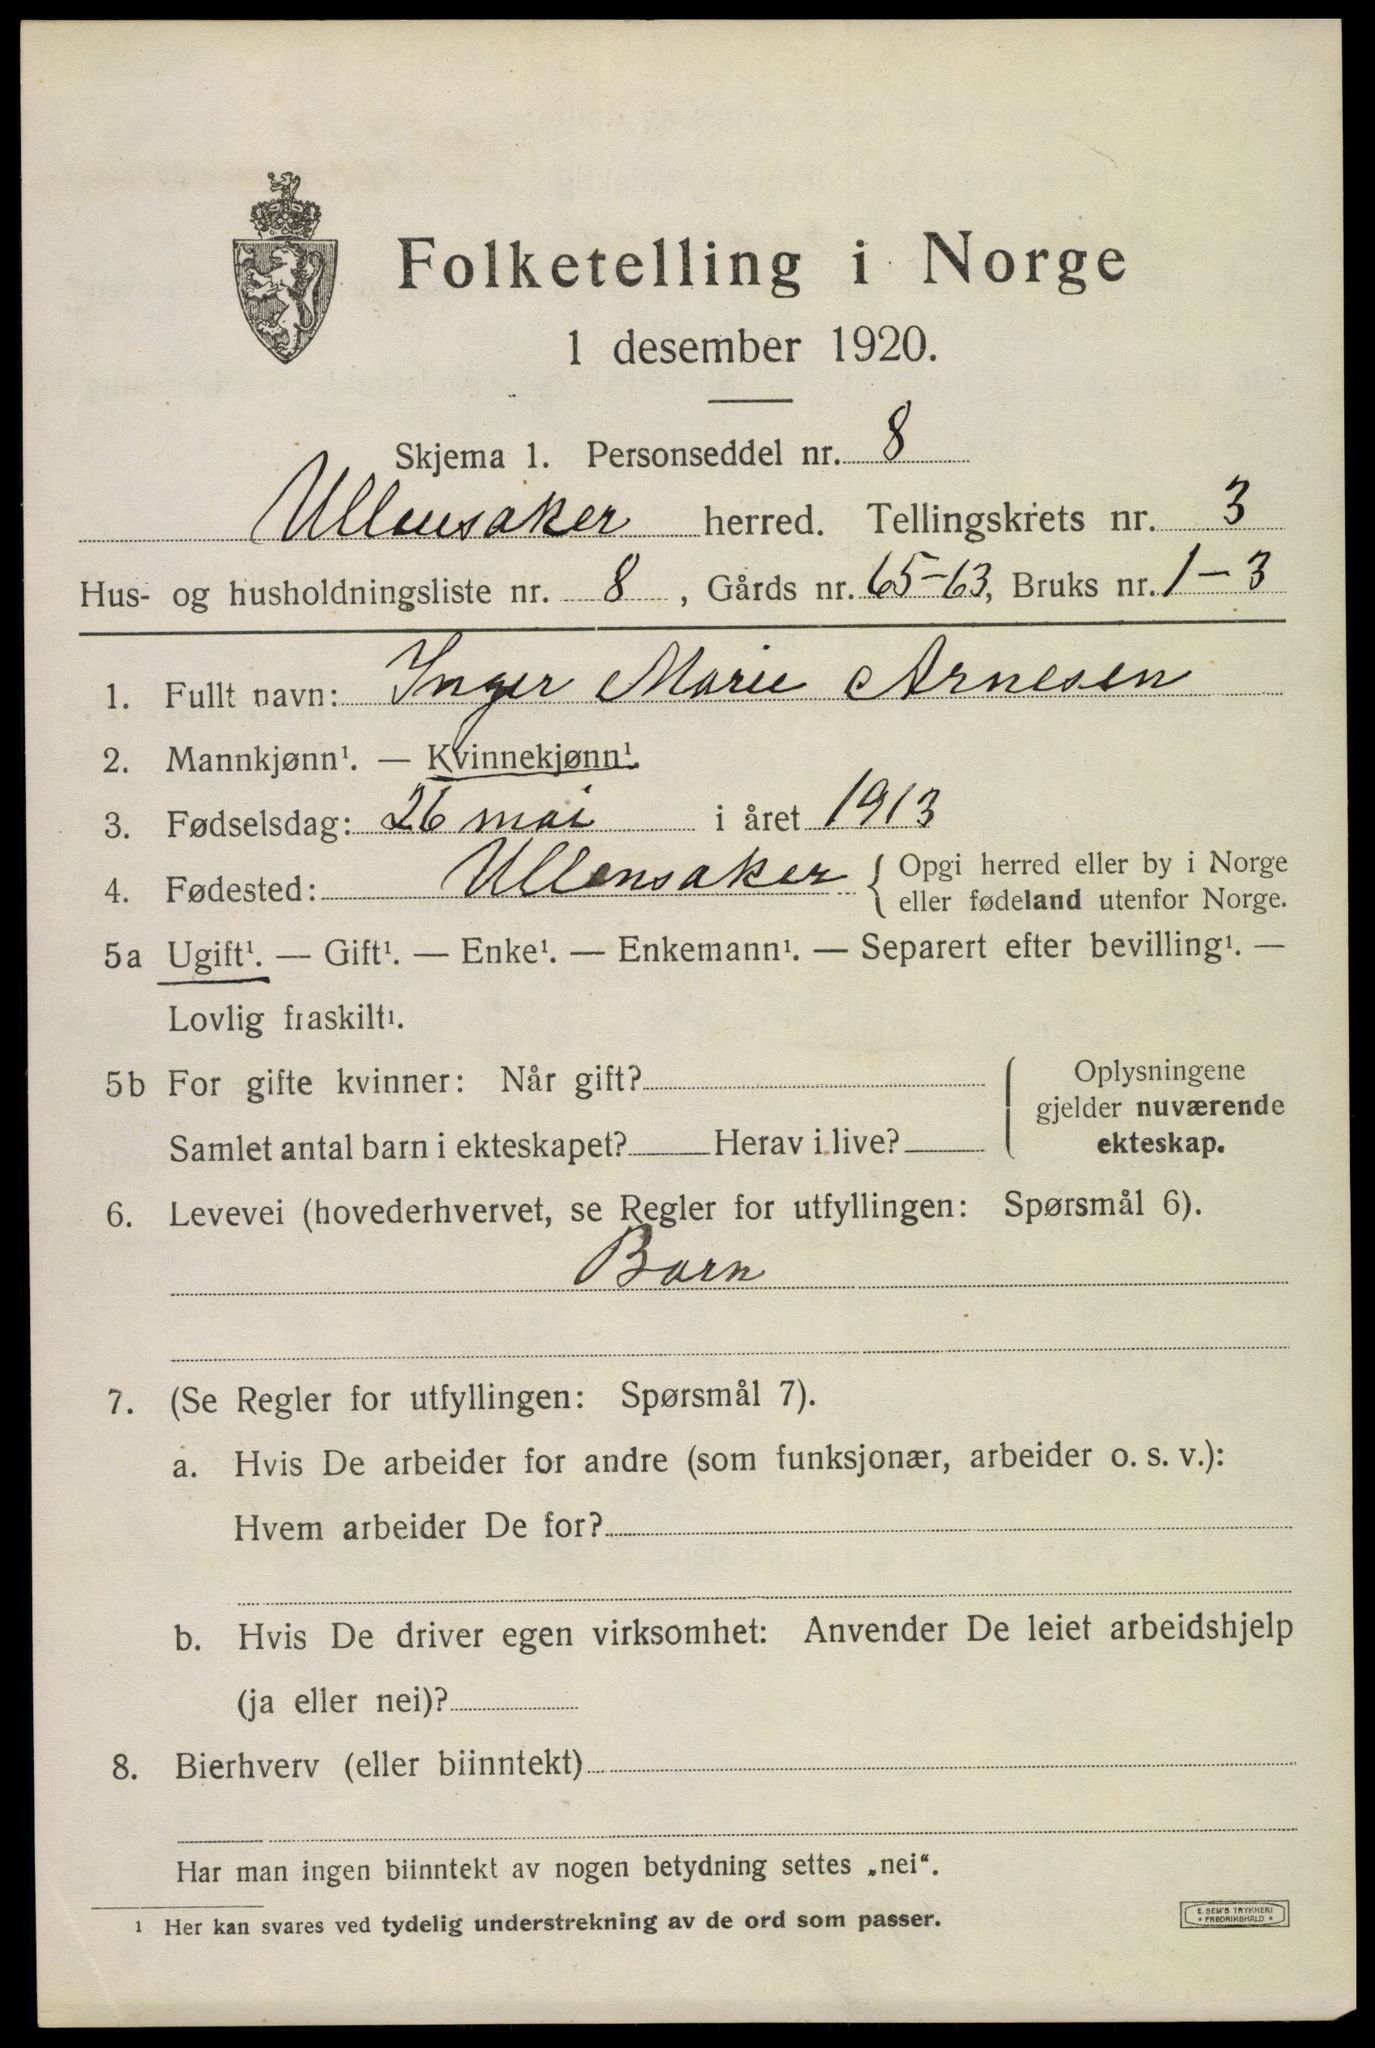 Folketelling i Norge
1 desember 1920.
Skjema 1. Personseddel nr. 8
Ullensaker herred. Tellingskrets nr. 3
Hus- og husholdningsliste nr. 8, Gårds nr. 65-63, Bruks nr. 1-3
1. Fullt navn: Inger Marie Arnesen
2. Mannkjønn¹. — Kvinnekjønn¹.
3. Fødselsdag: 26 mai i året 1913
4. Fødested: Ullensaker { Opgi herred eller by i Norge
eller fødeland utenfor Norge.
5a Ugift¹. — Gift¹. — Enke¹. — Enkemann¹. — Separert efter bevilling¹. —
Lovlig fraskilt¹.
5b For gifte kvinner: Når gift?
Samlet antal barn i ekteskapet? Herav i live?
Oplysningene
gjelder nuværende
ekteskap.
6. Levevei (hovederhvervet, se Regler for utfyllingen: Spørsmål 6).
Barn
7. (Se Regler for utfyllingen: Spørsmål 7).
a. Hvis De arbeider for andre (som funksjonær, arbeider o. s. v.):
Hvem arbeider De for?
b. Hvis De driver egen virksomhet: Anvender De leiet arbeidshjelp
(ja eller nei)?
8. Bierhverv (eller biinntekt)
Har man ingen biinntekt av nogen betydning settes „nei“.
¹ Her kan svares ved tydelig understrekning av de ord som passer.
E. SEM'S TRYKKERI
* FREDRIKSHALD *